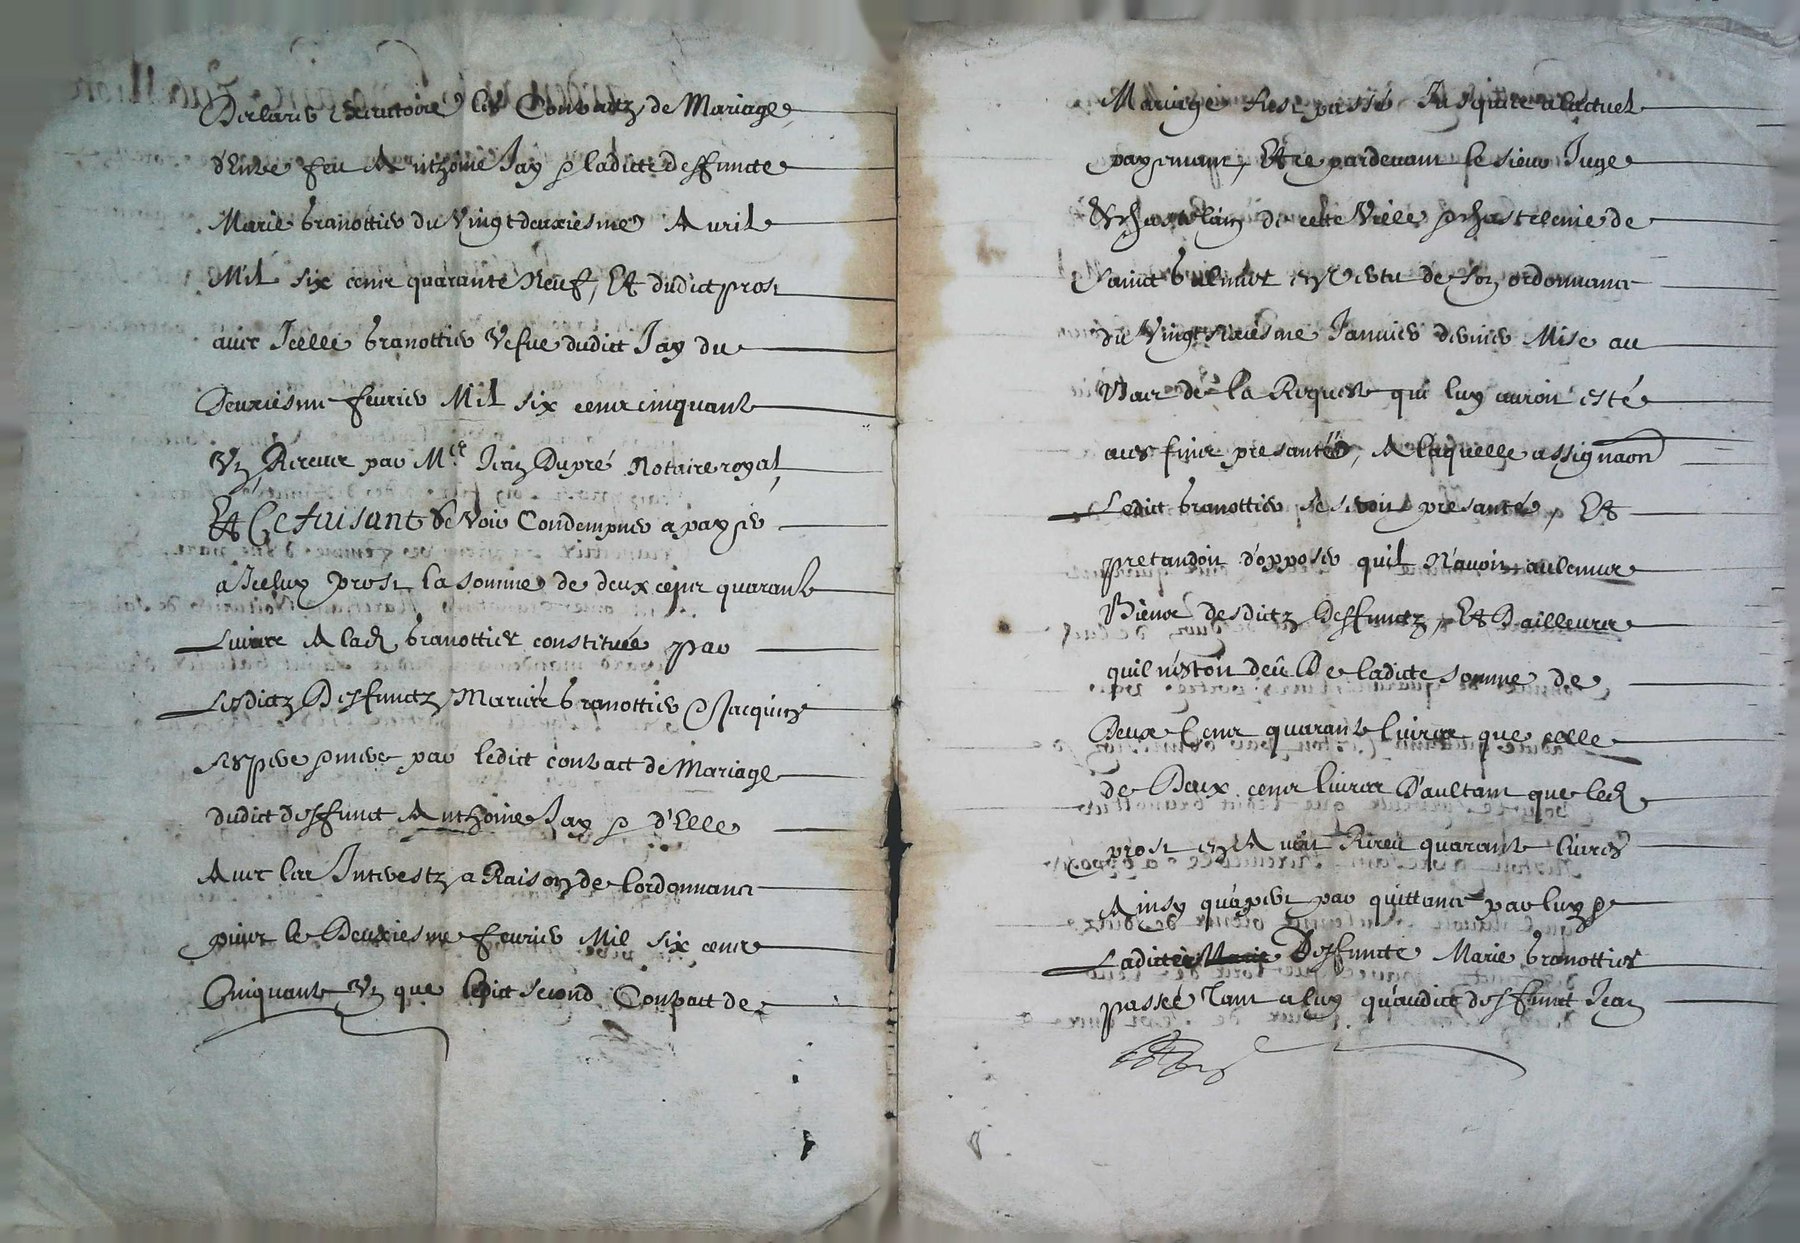 Declarer executoire les Contractz de Mariage
d'Entre feu Anthoine Jay & ladicte deffuncte
Marie branottier du Vingtdeuxiesme Avril
Mil six cent quarante Neuf, Et dudict prost
avec Icelle branottier Vefve dudict Jay du
Deuxiesme febvrier Mil six cent cinquante
Un Receus par Mre Jean Dupré Notaire royal,
Et Ce faisant se Voir Condempner a payer
a Iceluy prost la somme de deux cent quarante
Livres A lad branottier constituée par
Lesdictz Deffunctz branottier & Jacquin
ses pere & mere par ledict contract de Mariage
dudict deffunct Anthoine Jay & d'Elle
Avec les Interestz a Raison de lordonnance
puis le Deuxiesme febvrier Mil six cent
Cinquante Un que ledict second Contract de
Mariage fust passé Jusques a lactuel
payement, Et ce pardevant le sieur Juge
& Chastelain de cette Ville & chastelenie de
saint en Vertu de son ordonnance
du Vingt Janvier dernier Mise au
de la Requeste qui luy auroit esté
aux fins presantée, A laquelle assignaon
Ledict branottier se seroit presanté, Et
pretandoit d'opposer quil N'avoit aulcuns
Biens desdictz Deffunctz, Et D'ailleurs
quil n'estoit deu De ladicte somme de
Deux Cent quarante livres que celle
de Deux cent livres D'aultant que led
prost en Avoit Receu quarante livres
Ainsy qu'apert par quittance par luy &
Ladicte Deffuncte Marie branottier
passée Tant a luy qu'audict deffunct Jean